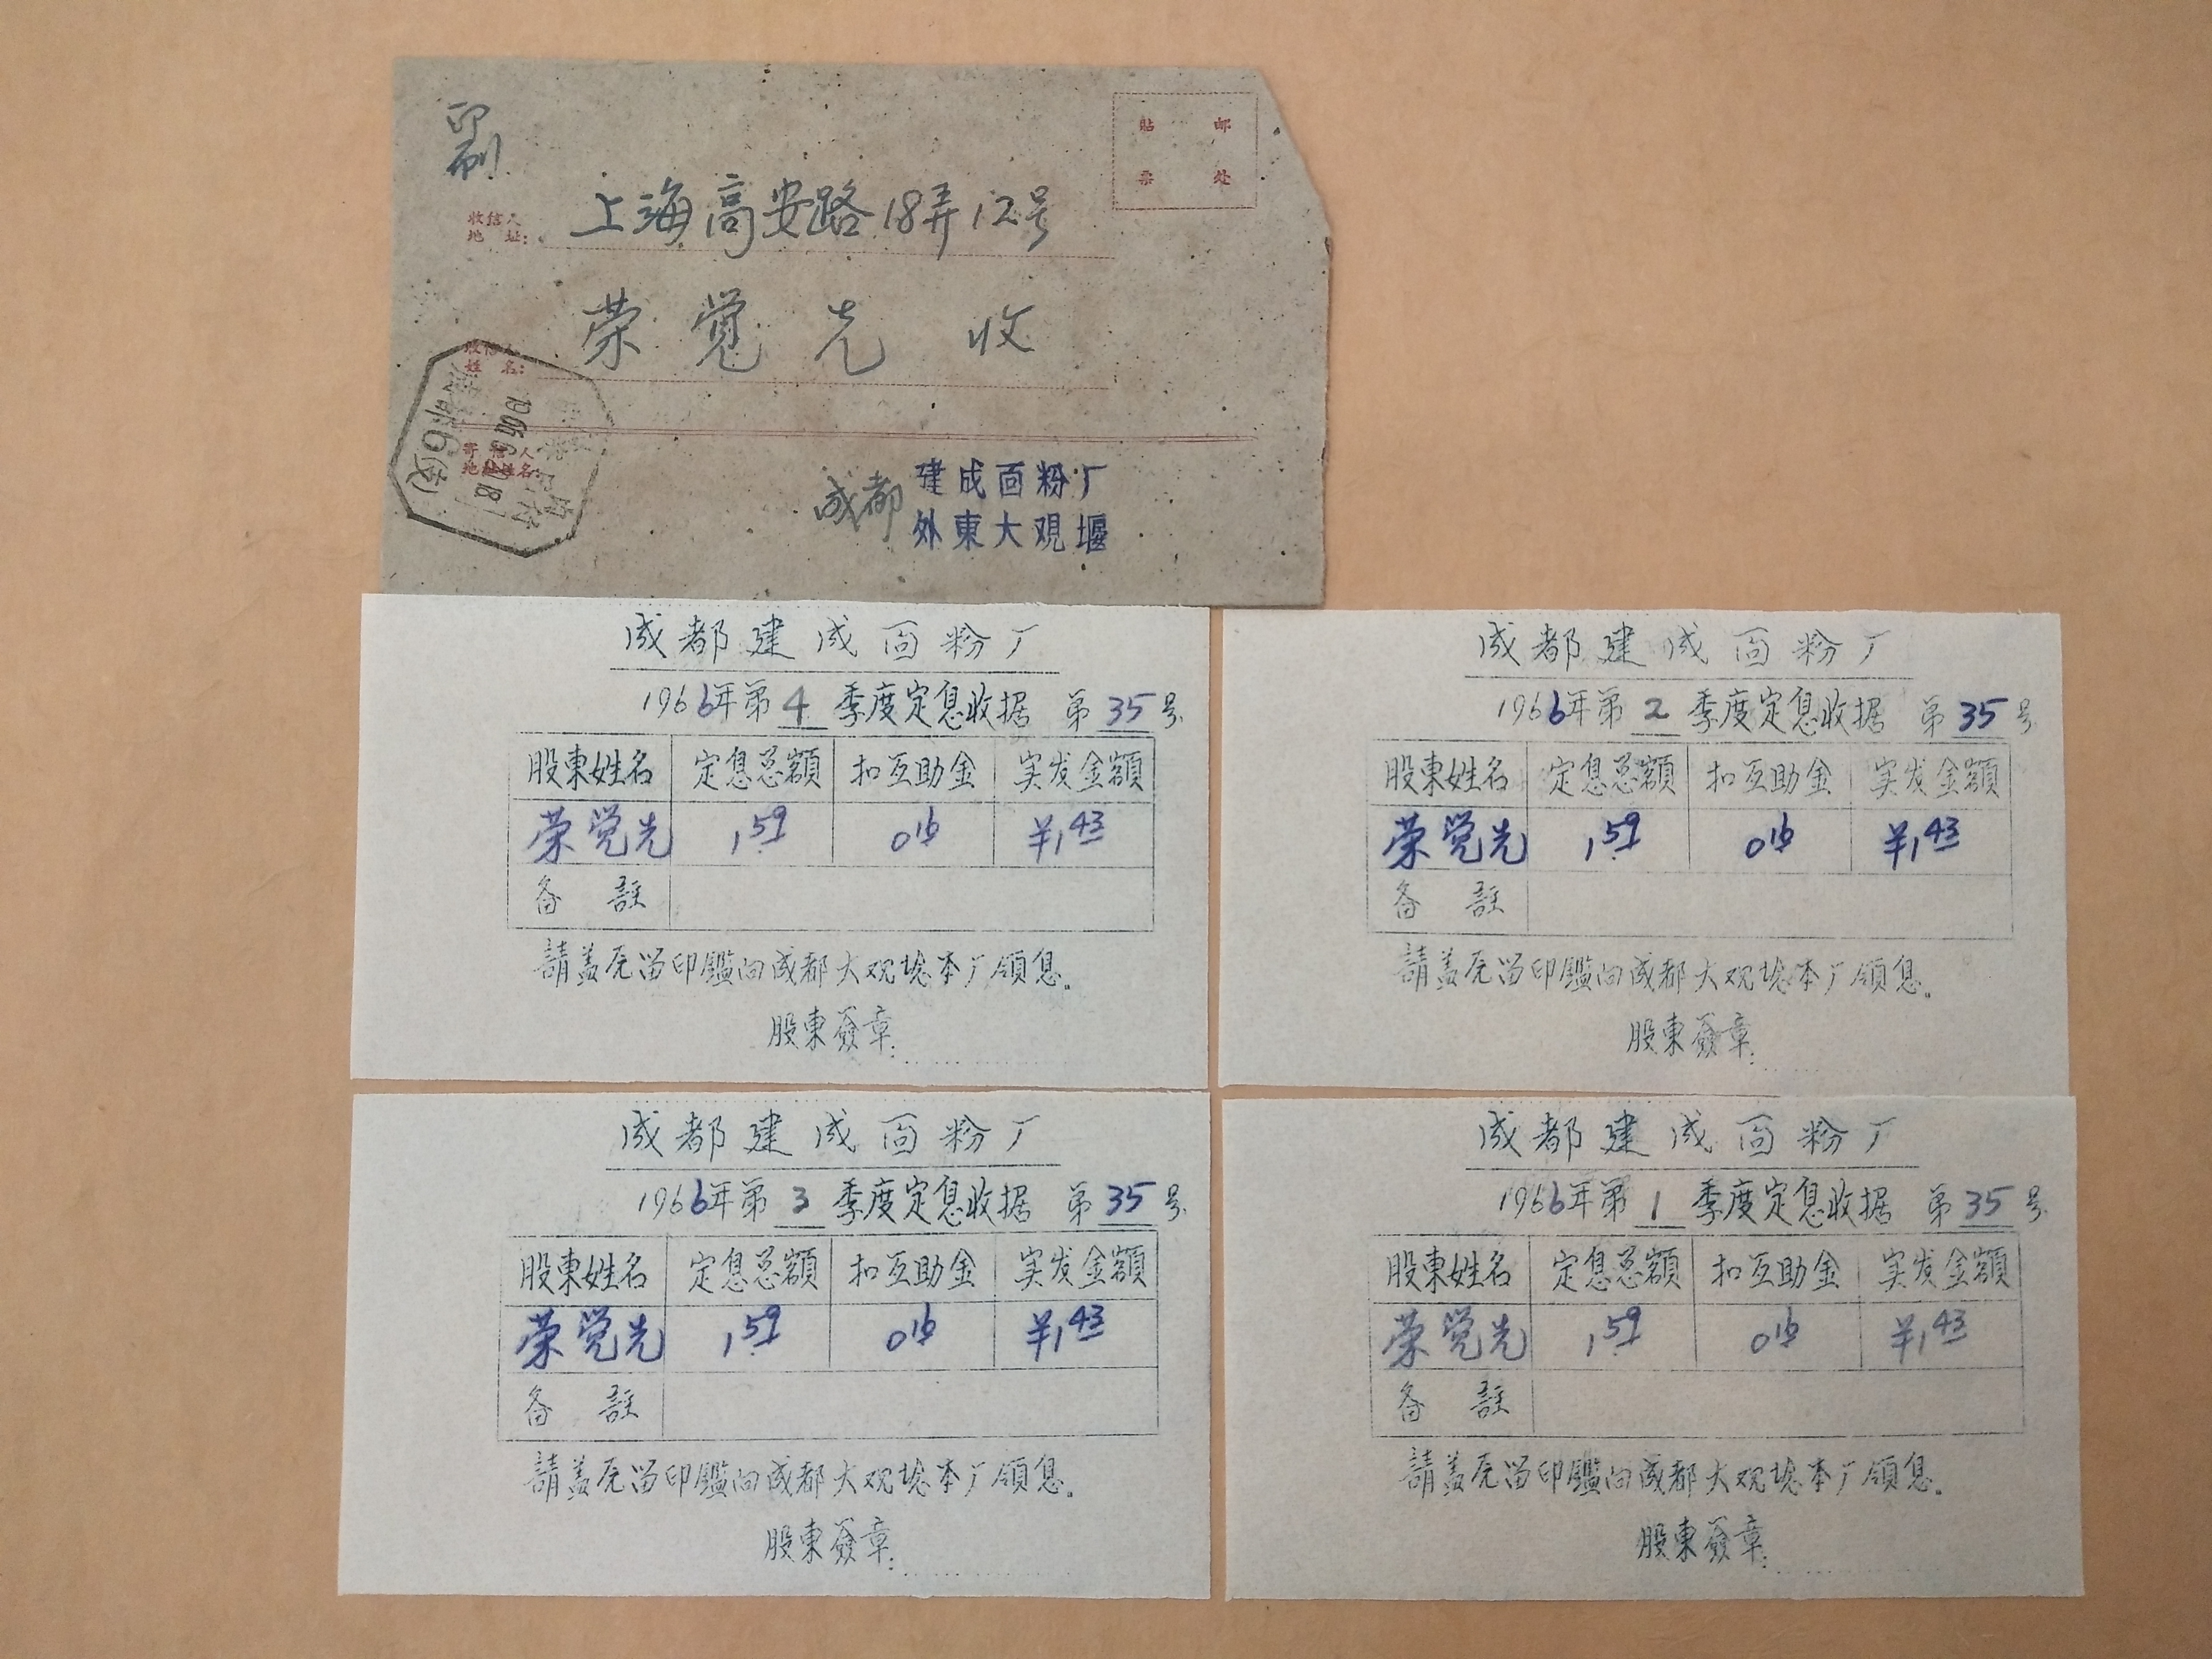 印
刷
貼 邮
票 处
收信人
地 址:
上海高安路18弄12号
收信人
姓 名:
荣覺先 收
寄信人
地址姓名:
成都6(支)
成都 建成面粉厂
外東大观堰
成都建成面粉厂
1966年第4季度定息收据 第35号
股東姓名 定息总額 扣互助金 实发金額
荣覚先 1.59 0.16 ¥1.43
备 註
請盖原留印鑑向成都大观堰本厂領息。
股東簽章:
成都建成面粉厂
1966年第2季度定息收据 第35号
股東姓名 定息总額 扣互助金 实发金額
荣覚先 1.59 0.16 ¥1.43
备 註
請盖原留印鑑向成都大观堰本厂領息。
股東簽章:
成都建成面粉厂
1966年第3季度定息收据 第35号
股東姓名 定息总額 扣互助金 实发金額
荣覚先 1.59 0.16 ¥1.43
备 註
請盖原留印鑑向成都大观堰本厂領息。
股東簽章:
成都建成面粉厂
1966年第1季度定息收据 第35号
股東姓名 定息总額 扣互助金 实发金額
荣覚先 1.59 0.16 ¥1.43
备 註
請盖原留印鑑向成都大观堰本厂領息。
股東簽章: